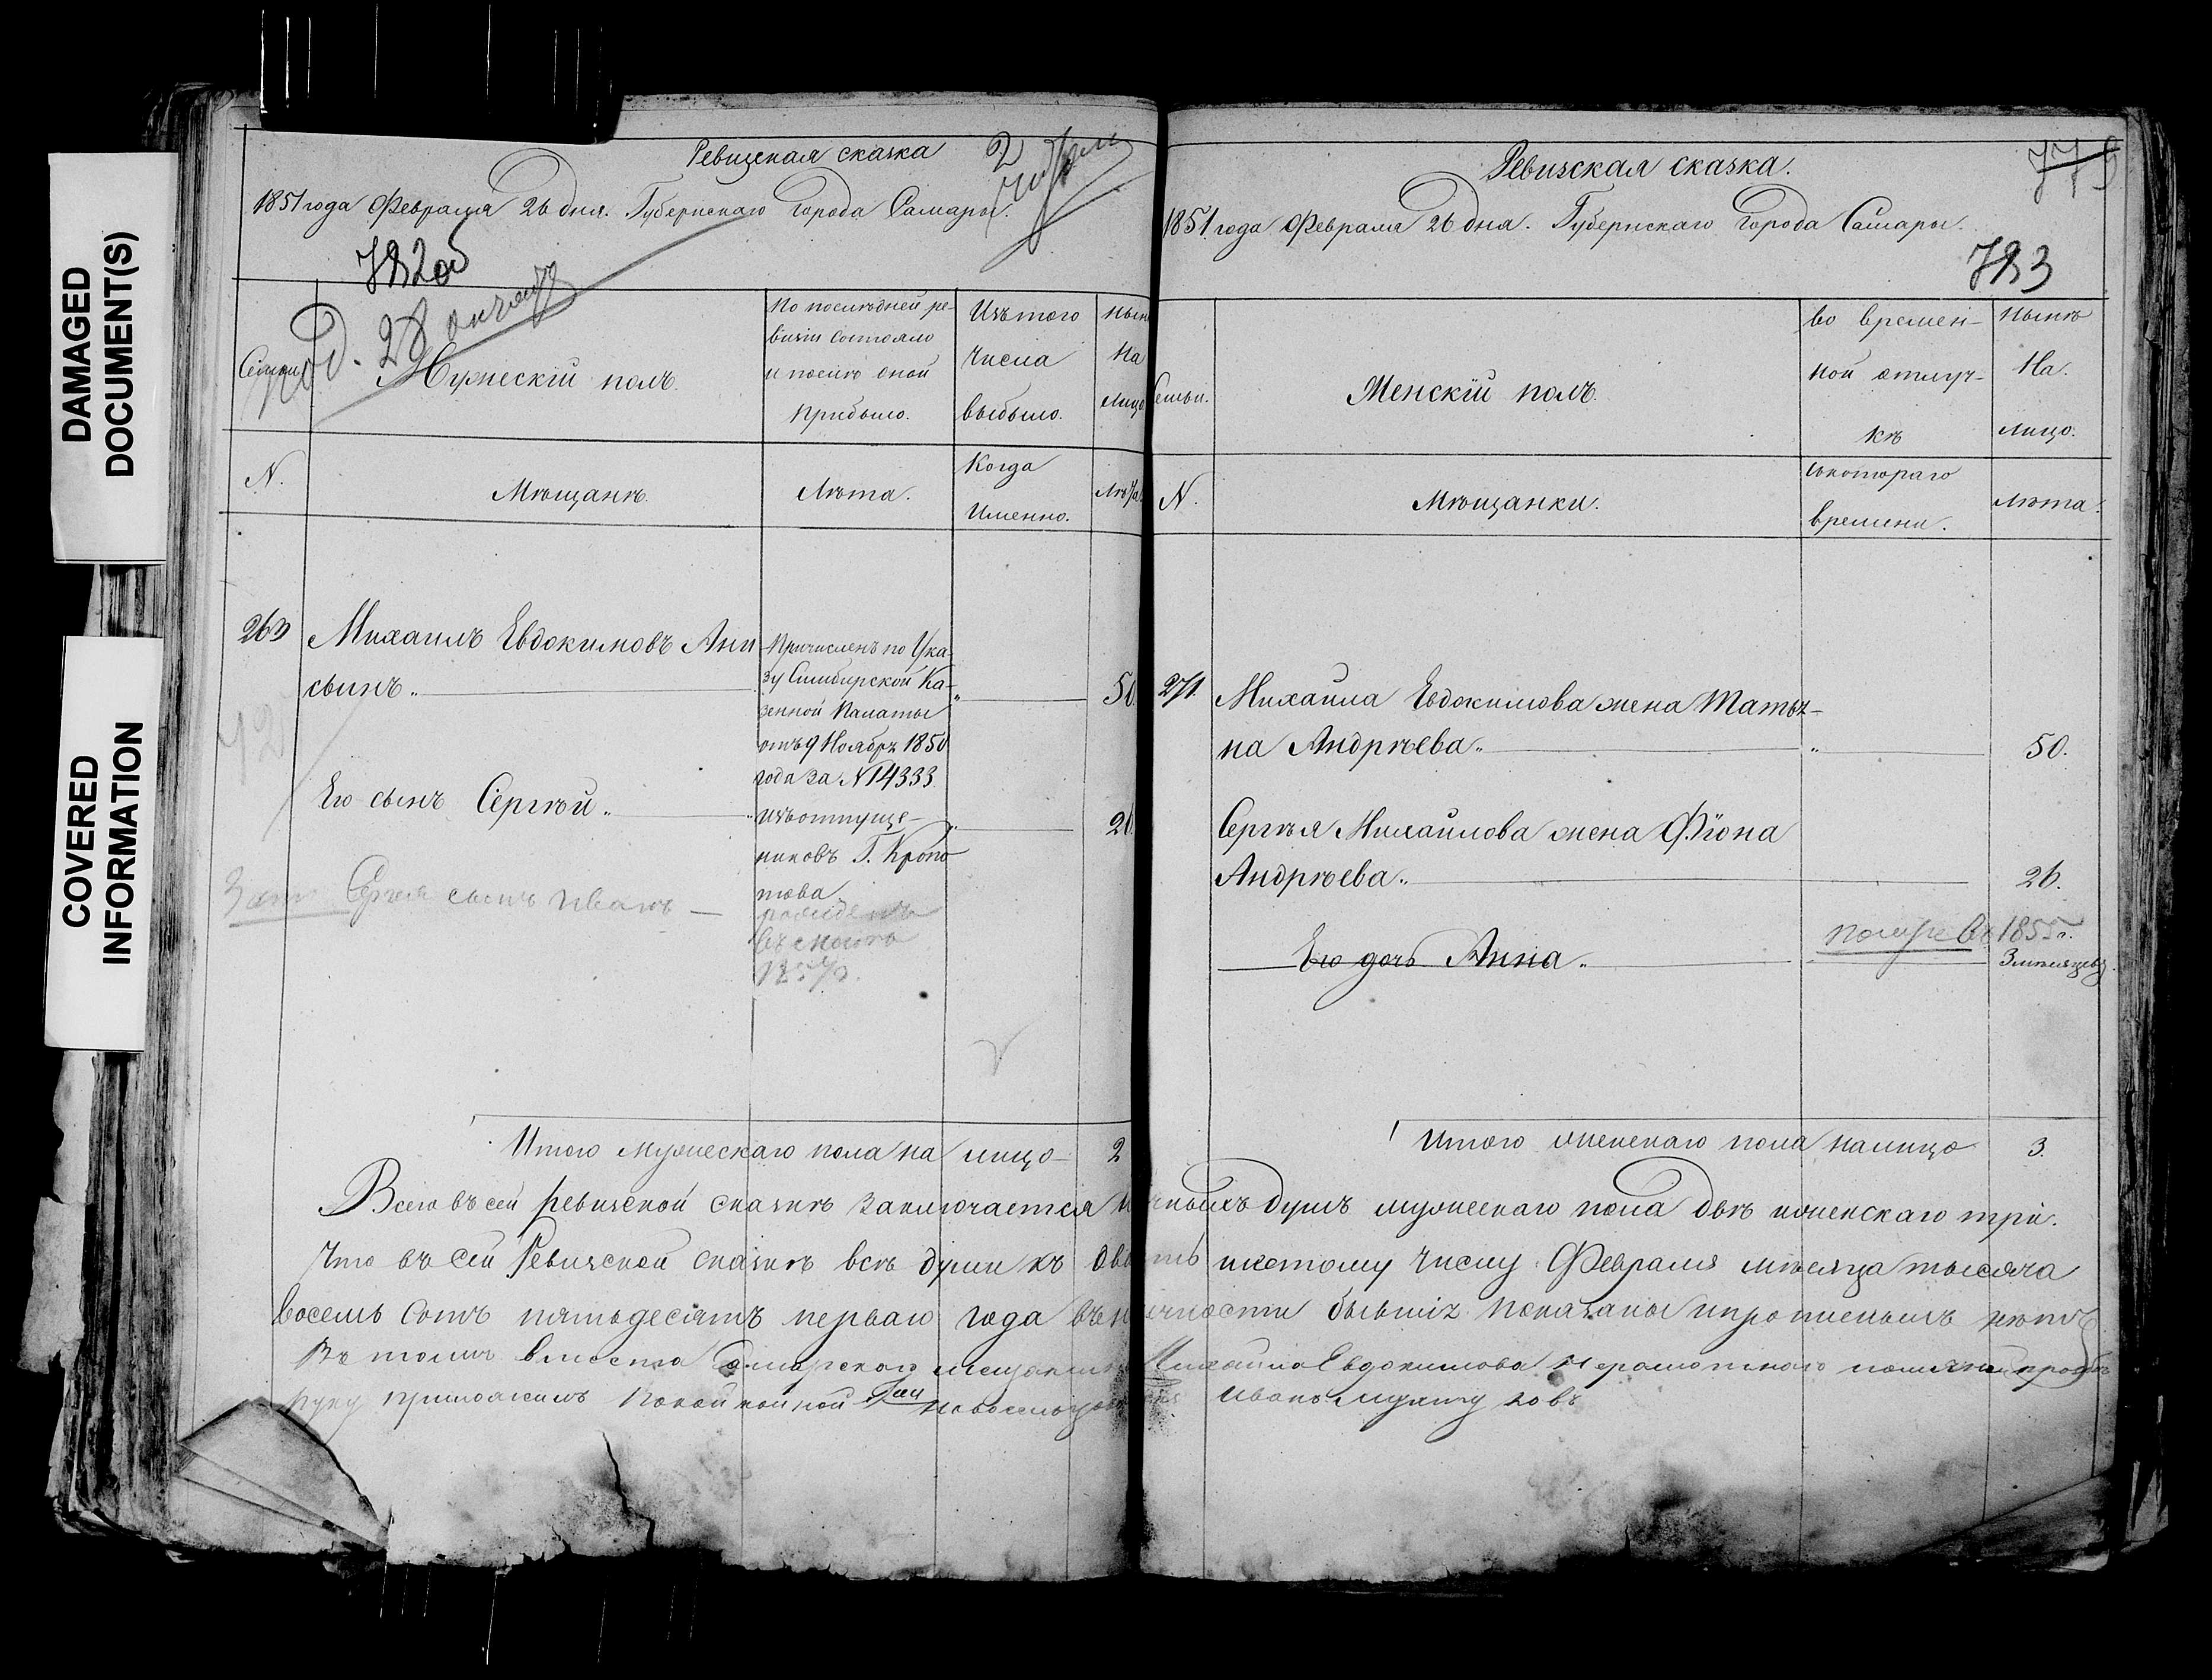 DAMAGED
DOCUMENT(S)
COVERED
INFORMATION
Ревизская сказка
2
1851 года Февраля 26 дня. Губернскаго города Самары.
782об
Семьи
Мужескій полъ.
По послѣдней ре-
визіи состояло
и послѣ оной
прибыло.
Изъ того
числа
выбыло.
Нынѣ
На
лицо
N.
Мѣщанѣ.
Лѣта.
Когда
Именно.
Лѣта.
263
Михаилъ Евдокимовъ Ани
сьинъ „
Причисленъ по Ука-
зу Симбирской Ка-
зенной Палаты
отъ 9 Ноябрѣ 1850
года за N 14333
изъ отпуще-
никовъ Г. Кропо
това
50
Его сынъ Сергѣй „
26
Сергея сынъ Иванъ —
Итого мужескаго пола на лицо 2
779
Ревизская сказка.
1851 года Февраля 26 дня. Губернскаго города Самары.
783
Семьи.
Женскій полъ.
Во времен-
ной отлуч-
кѣ
Нынѣ
На.
лицо.
N.
Мѣщанки.
Съкотораго
времени.
Лѣта.
271.
Михаила Евдокимова жена Татья-
на Андрѣева „
50.
Сергѣя Михайлова жена Фіона
Андрѣева „
26.
Его дочь Анна „
1855 г.
3 мѣсяцевъ
Итого женскаго пола налицо 3.
Всего въ сей ревизской сказкѣ заключается наличныхъ душъ мужескаго пола двѣ и женскаго три.
Что въ сей Ревизской сказкѣ всѣ души къ двадцать шестому числу Февраля мѣсяца тысяча
восемь сотъ пятьдесятъ перваго года въ наличности бывшіе показаны и прописныхъ нѣтъ
Въ томъ вместо Самарскаго мещанина Михайла Евдокимова неграмотнаго поличной прозбѣ
руку приложилъ Иванъ